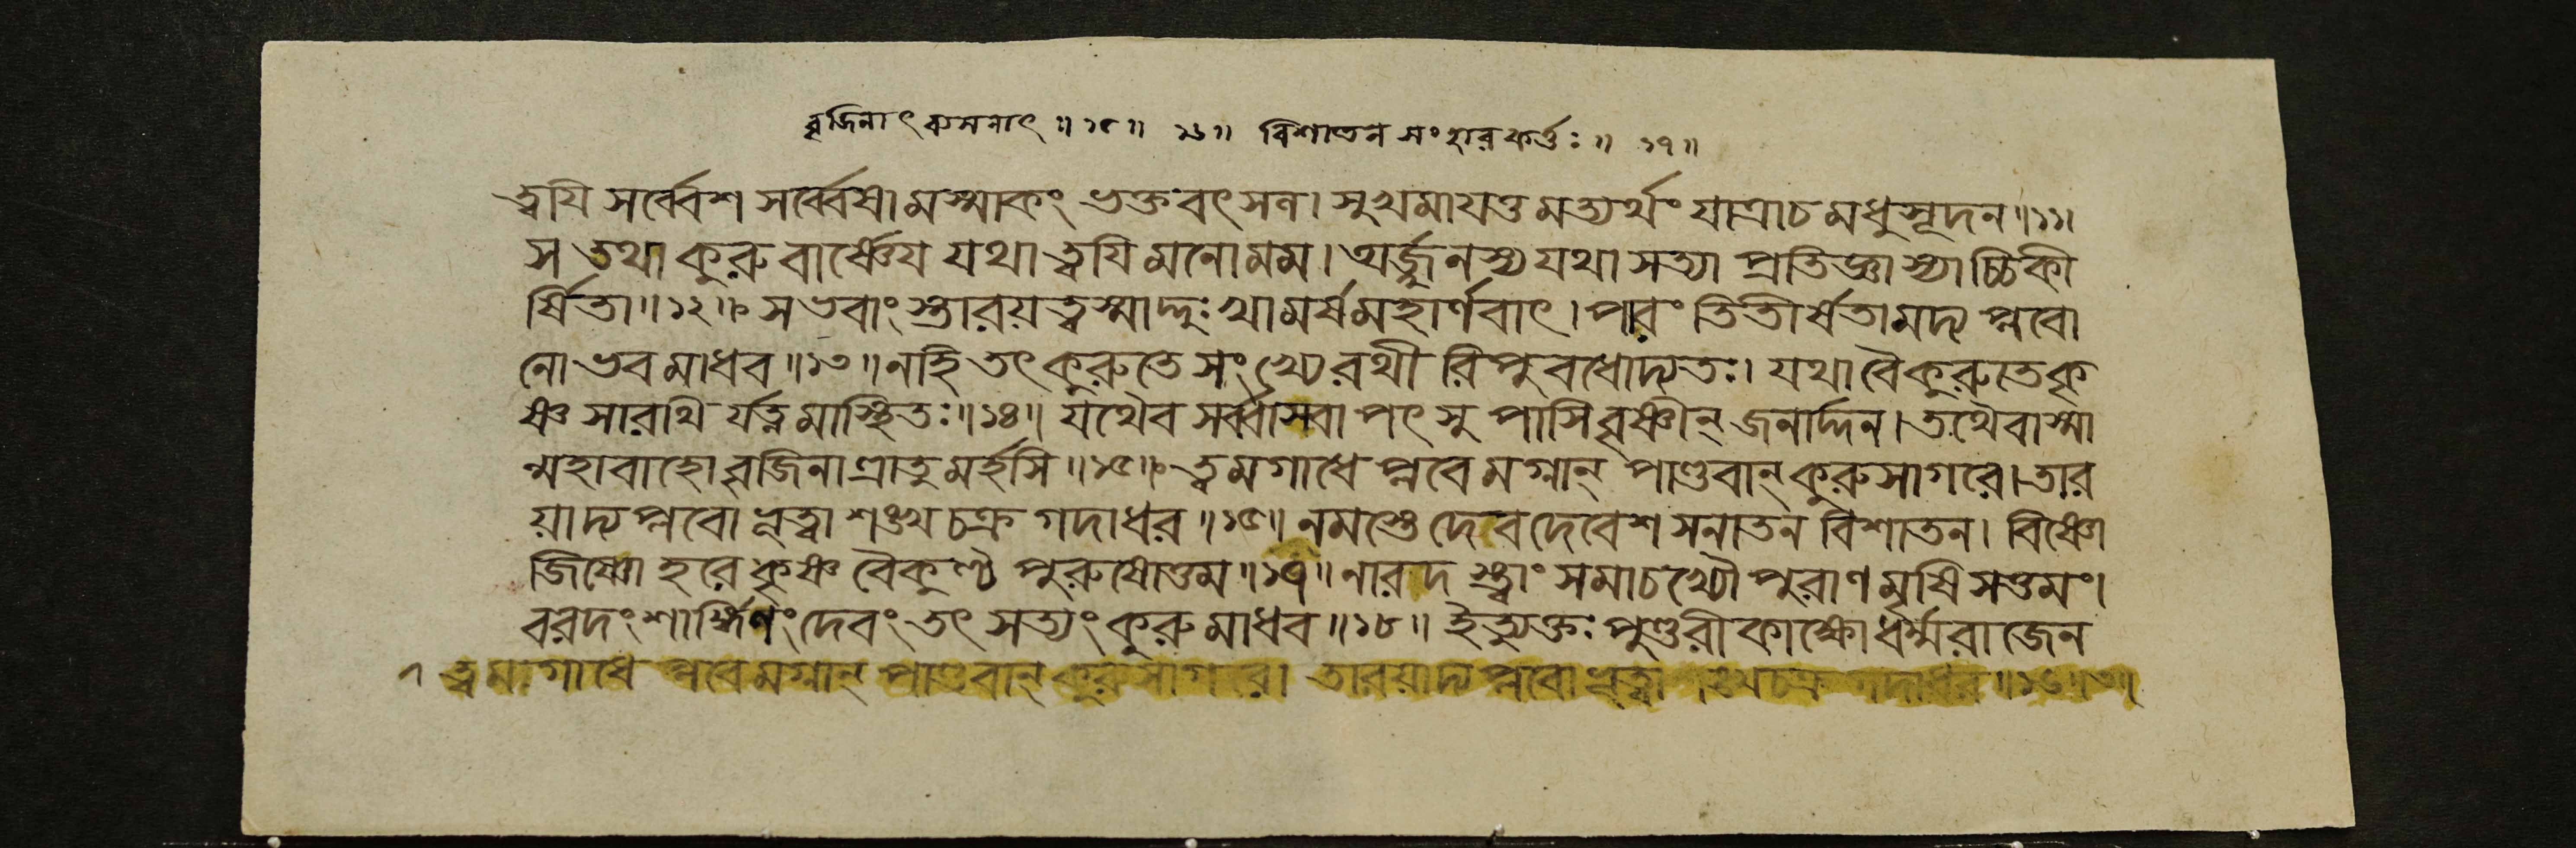 বৃজিনাৎ ব্যসনাৎ ॥ ১৫ ॥ ১৬ ॥ বিশাতন সংহারকর্ত্তঃ ॥ ১৭ ॥
ত্বয়ি সর্ব্বেশ সর্ব্বেষামস্মাকং ভক্তবৎসল। সুখমায়ত্তমত্যর্থং যাত্রাচ মধুসূদন ॥১১॥
স তথা কুরু বার্ষ্ণেয় যথা ত্বয়ি মনোমম। অর্জ্জুনস্য যথা সত্যা প্রতিজ্ঞা স্যাচ্চিকী
র্ষিতা ॥১২॥ স ভবাংস্তারয়ত্বস্মাদ্দুঃখামর্ষমহার্ণবাৎ। পারং তিতীর্ষতামদ্য প্লবো
নো ভব মাধব ॥১৩॥ নহি তৎ কুরুতে সংখ্যে রথী রিপুবধোদ্যতঃ। যথা বৈ কুরুতে কৃ
ষ্ণ সারথি র্যত্নমাস্থিতঃ ॥১৪॥ যথৈব সর্ব্বাস্বাপৎসু পাসি বৃষ্ণীন্ জনার্দ্দন। তথৈবাস্মা
ন্মহাবাহো বৃজিনাত্রাতুমর্হসি ॥১৫॥ ত্বমগাধে প্লবে মগ্নান্ পাণ্ডবান্ কুরুসাগরে। তার
য়াদ্য প্লবো ভূত্বা শঙ্খচক্রগদাধর ॥১৬॥ নমস্তে দেবদেবেশ সনাতন বিশাতন। বিষ্ণো
জিষ্ণো হরে কৃষ্ণ বৈকুণ্ঠ পুরুষোত্তম ॥১৭॥ নারদ স্ত্বাং সমাচখ্যৌ পুরাণমৃষিসত্তমং।
বরদং শার্ঙ্গিণং দেবং তৎ সত্যং কুরু মাধব ॥১৮॥ ইত্যুক্তঃ পুণ্ডরীকাক্ষো ধর্ম্মরাজেন
৭ ত্বমগাধে প্লবে মগ্নান্ পাণ্ডবান্ কুরুসাগরে। তারয়াদ্য প্লবো ভূত্বা শঙ্খচক্র গদাধর ॥১৬॥